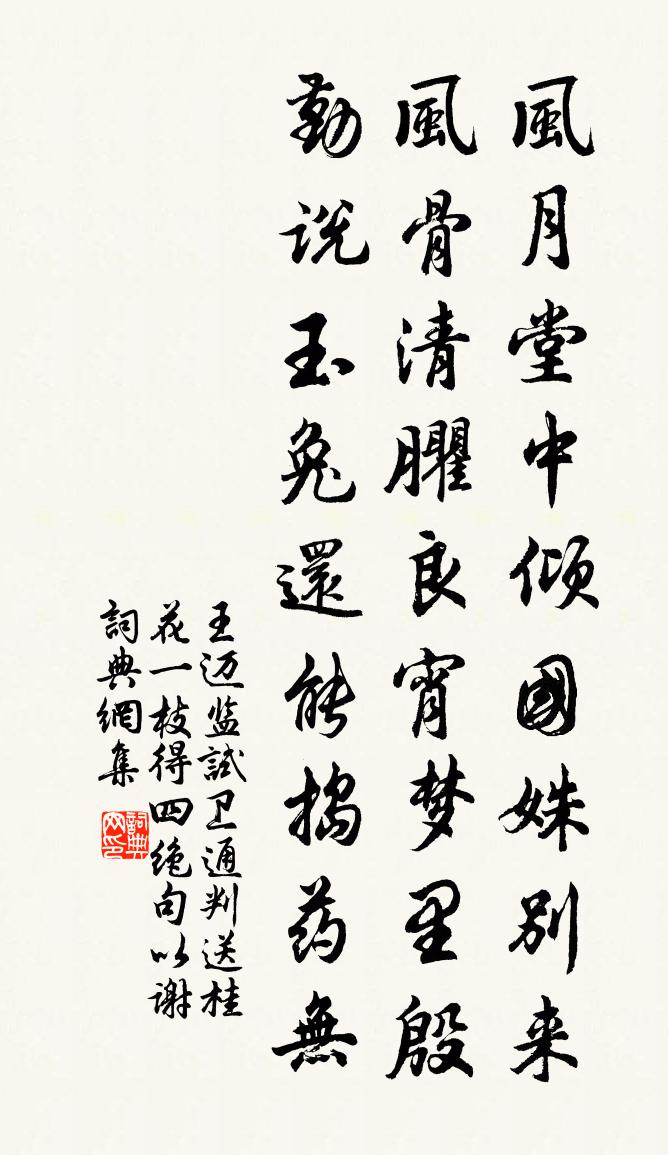 風月堂中傾國姝別来
風骨清臞良宵梦里殷
勤説玉兔還能搗药無
王迈监試卫通判送桂
花一枝得四絶句以谢
詞典網集
詞典网印